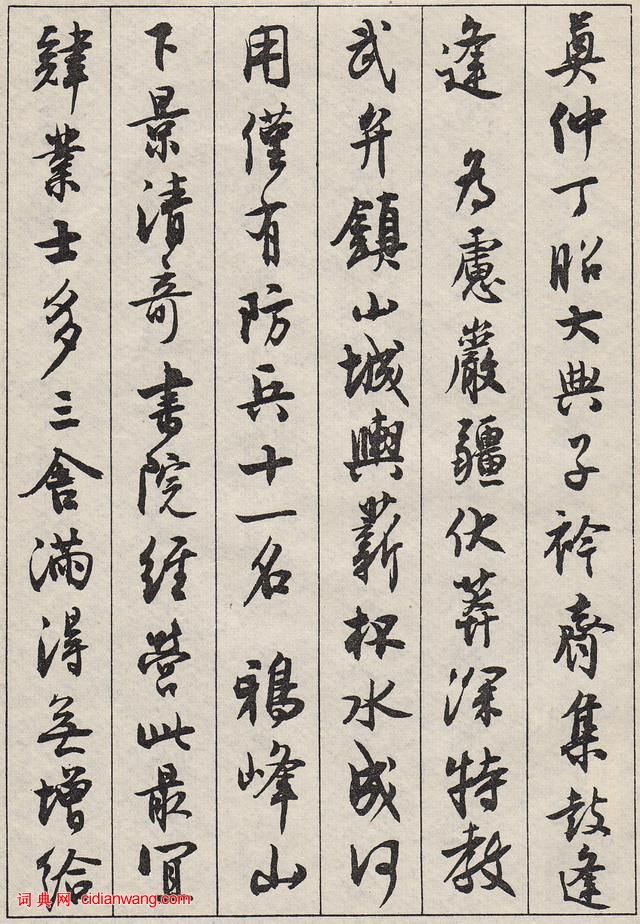 奠仲丁昭大典子衿齊集鼓逢
逢　為慮巖疆伏莽深特教
武弁鎮山城輿薪杯水成何
用僅有防兵十一名　鴉峰山
下景清奇書院經營此最宜
肄業士多三舍滿得無增給
词典网:cidianwang.com